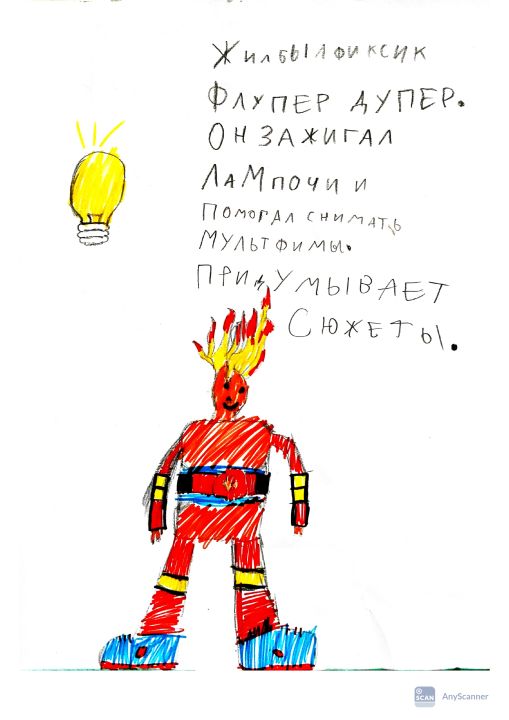 ЖилбылФиксик
Флупер дупер.
Он зажигал
Лампочи и
Помогал снимать
Мультфимы.
Придумывает
Сюжеты.
SCAN AnyScanner